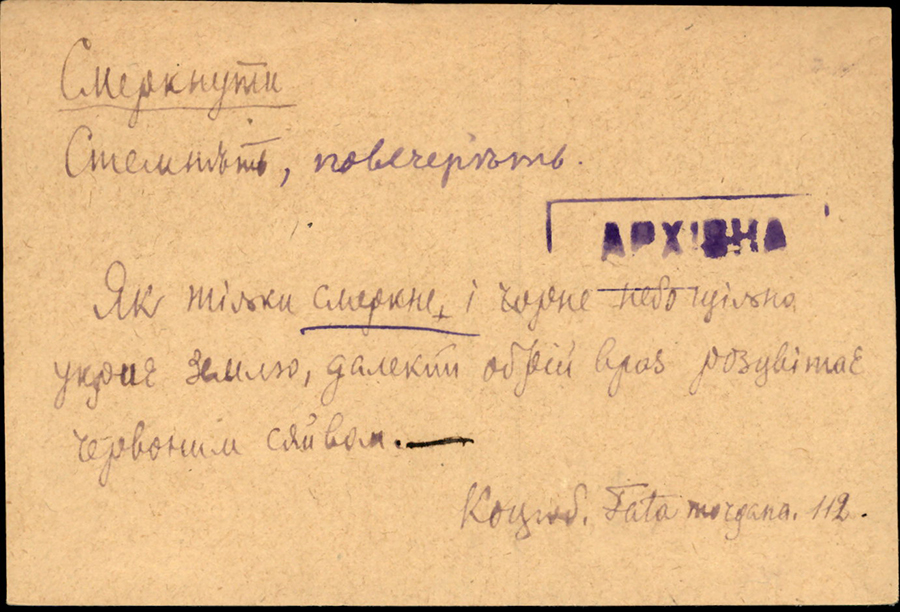 Смеркнути
Стемнѣть, повечерѣть.
АРХІВНА
Як тільки смеркне, і чорне небо щільно
укриє землю, далекий обрій враз розцвітає
червоним сяйвом.—
Коцюб. Fata morgana. 112.